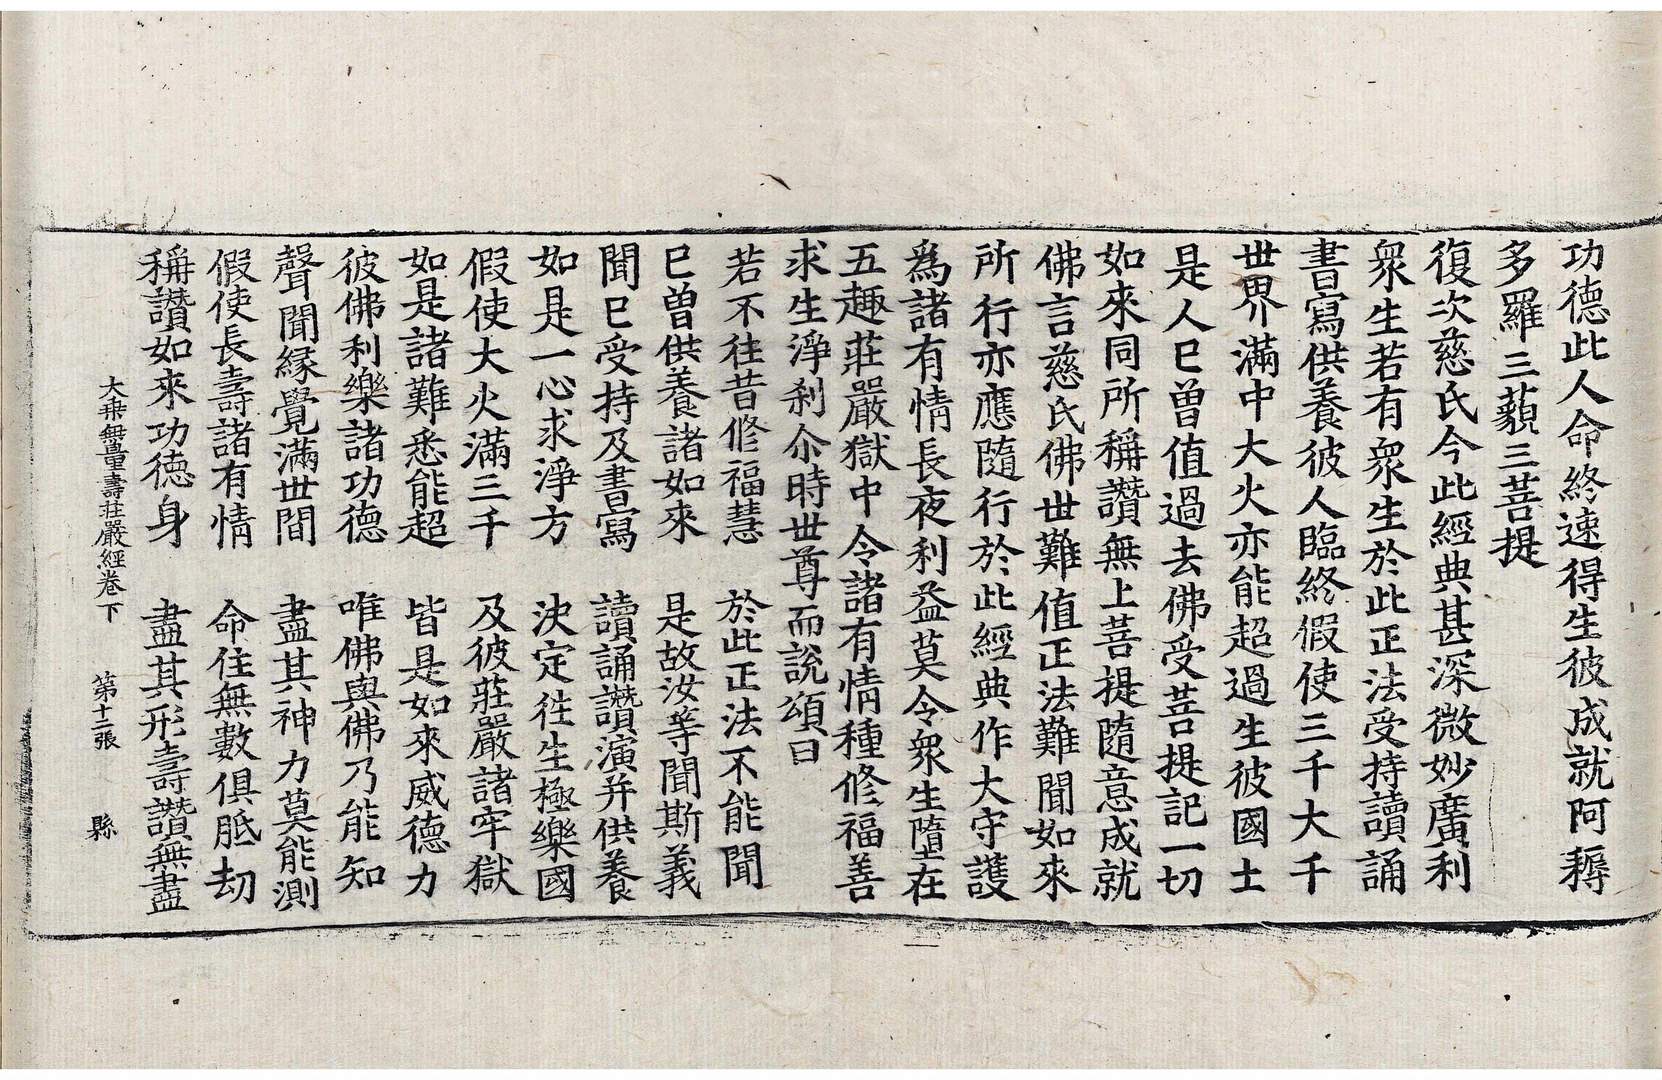 功德此人命終速得生彼成就阿耨
多羅三藐三菩提
復次慈氏今此經典甚深微妙廣利
衆生若有衆生於此正法受持讀誦
書寫供養彼人臨終假使三千大千
世界滿中大火亦能超過生彼國土
是人已曾值過去佛受菩提記一切
如來同所稱讚無上菩提隨意成就
佛言慈氏佛世難值正法難聞如來
所行亦應隨行於此經典作大守護
爲諸有情長夜利益莫令衆生墮在
五趣莊嚴獄中令諸有情種修福善
求生淨刹尒時世尊而說頌曰
若不往昔修福慧　於此正法不能聞
已曾供養諸如來　是故汝等聞斯義
聞已受持及書寫　讀誦讚演并供養
如是一心求淨方　決定往生極樂國
假使大火滿三千　及彼莊嚴諸牢獄
如是諸難悉能超　皆是如來威德力
彼佛利樂諸功德　唯佛與佛乃能知
聲聞緣覺滿世間　盡其神力莫能測
假使長壽諸有情　命住無數俱胝劫
稱讚如來功德身　盡其形壽讚無盡
大乘無量壽莊嚴經卷下　第十二張　縣